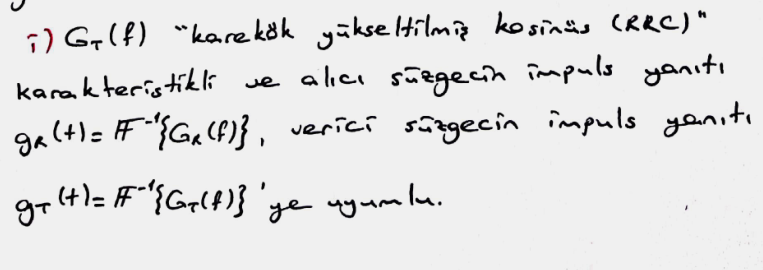 i) G_T(f) "karekök yükseltilmiş kosinüs (RRC)"
karakteristikli ve alıcı süzgecin impuls yanıtı
g_R(t) = F⁻¹{G_R(f)}, verici süzgecin impuls yanıtı
g_T(t) = F⁻¹{G_T(f)}'ye uyumlu.